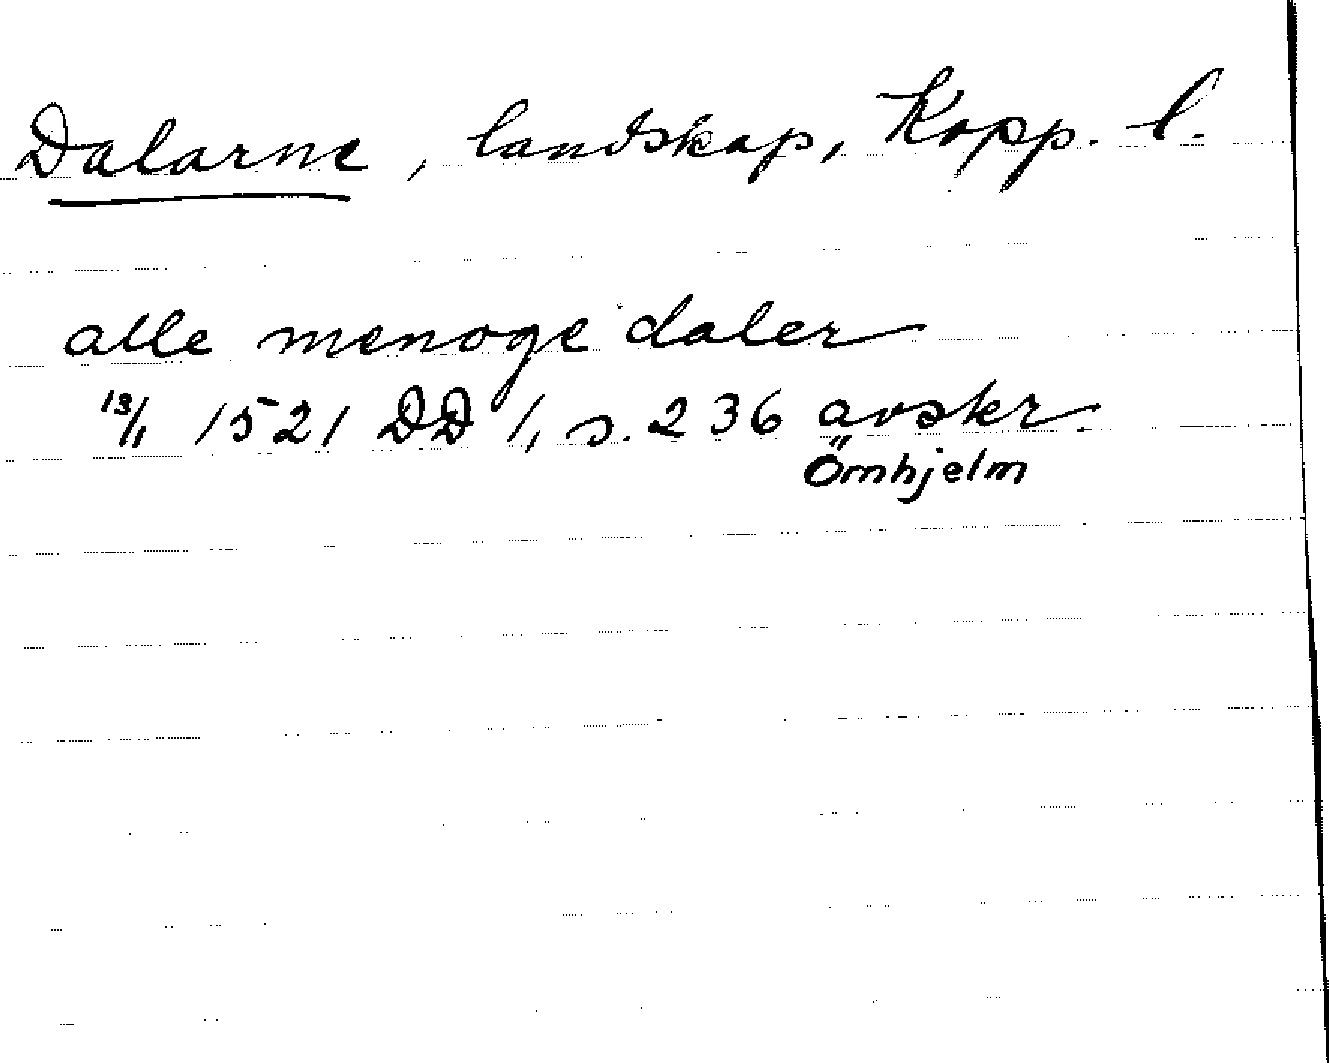 Dalarne, landskap, Kopp. l.
alle menoge daler
13/1 1521 DD 1, s. 236 avskr.
Örnhjelm